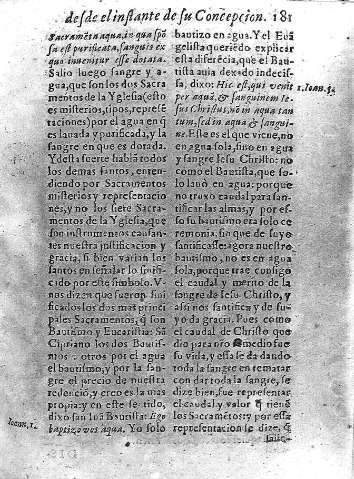 desde el instante de su Concepcion. 181
Sacramēta aqua, in qua spō
sa est purificata, sanguis ex
quo inuenitur esse dotata.
Salio luego sangre y a-
gua, que son los dos Sacra
mentos de la Yglesia, esto
es misterios, tipos, represē
taciones) por el agua en q̄
es lauada y purificada, y la
sangre en que es dorada.
Y desta fuerte hablā todos
los demas santos, enten-
diendo por Sacramentos
misterios y representacio
nes, y no los siete Sacra-
mentos de la Yglesia, que
son instrumētos causan-
tes nuestra justificacion y
gracia, si bien varian los
santos en señalar lo sinifi
cido por este simbolo. V-
nos dizen que fueron sini
ficados los dos mas princi
pales Sacramentos, q̄ son
Bautismo y Eucaristia: Sā
Cipriano los dos Bautis-
mos: otros por el agua
el bautismo, y por la san-
gre el precio de nuestra
redencion, y creo es la mas
propia: y en este sentido,
dixo san Ioā Bautista: Ego
baptizo vos aqua. Yo solo
Ioan. 1.
bautizo en agua. Y el Euā
gelista queriēdo explicar
esta diferēcia, que el Bau
tista auia dexado indecis-
sa, dixo: Hic est, qui venit
per aquā, & sanguinem Ie-
sus Christus, nō in aqua tan
tum, sed in aqua & sangui-
ne. Este es el que viene, no
en agua sola, sino en agua
y sangre Iesu Christo: no
como el Bautista, que so-
lo lauō en agua: porque
no truxo caudal para san-
tificar las almas, y por es-
so su bautismo era solo ce
remonia, sin que de suyo
santificasse: agora nuestro
bautismo, no es en agua
sola, porque trae consigo
el caudal y merito de la
sangre de Iesu Christo, y
assi nos santifica y de su-
yo da gracia. Pues como
el caudal de Christo que
dio para oro medio fue
su vida, y essa se da dando
toda la sangre en rematar
con dar toda la sangre, se
dize bien, fue representar
el caudal y valor q̄ tienē
los Sacramētos: y por essa
representacion se dize, q̄
1. Ioan. 5.